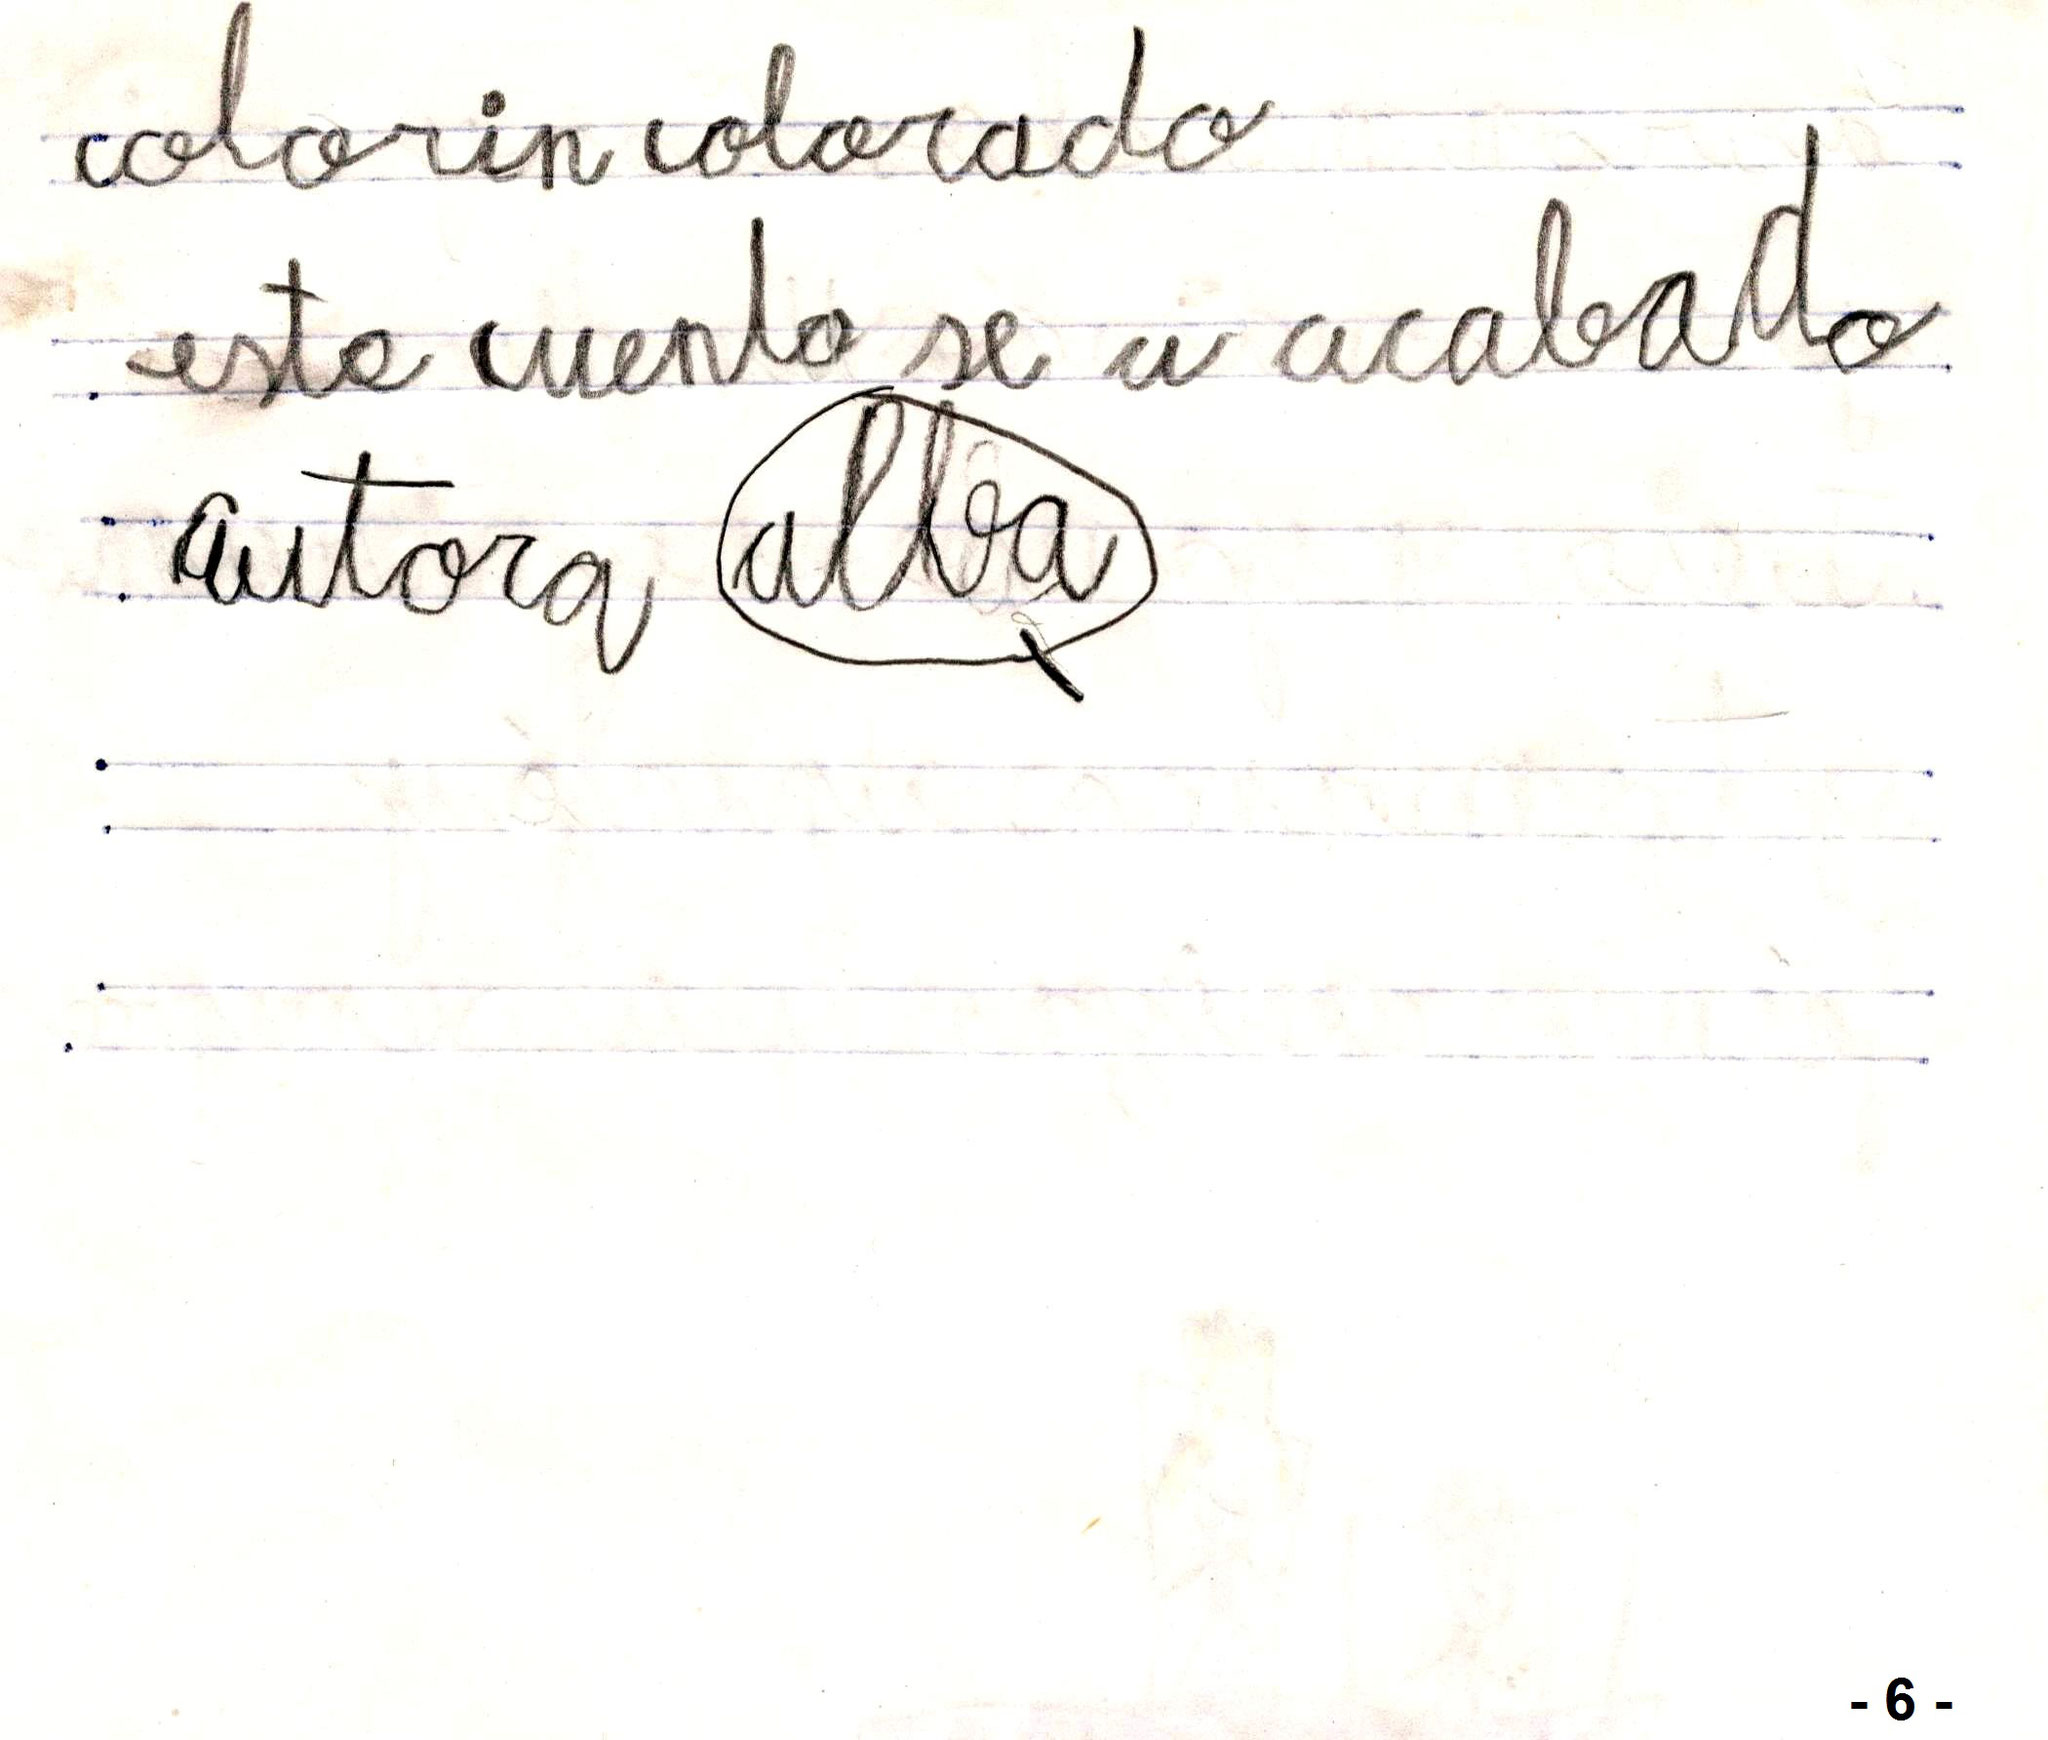 colorin colorado
este cuento se a acabado
autora alba
- 6 -